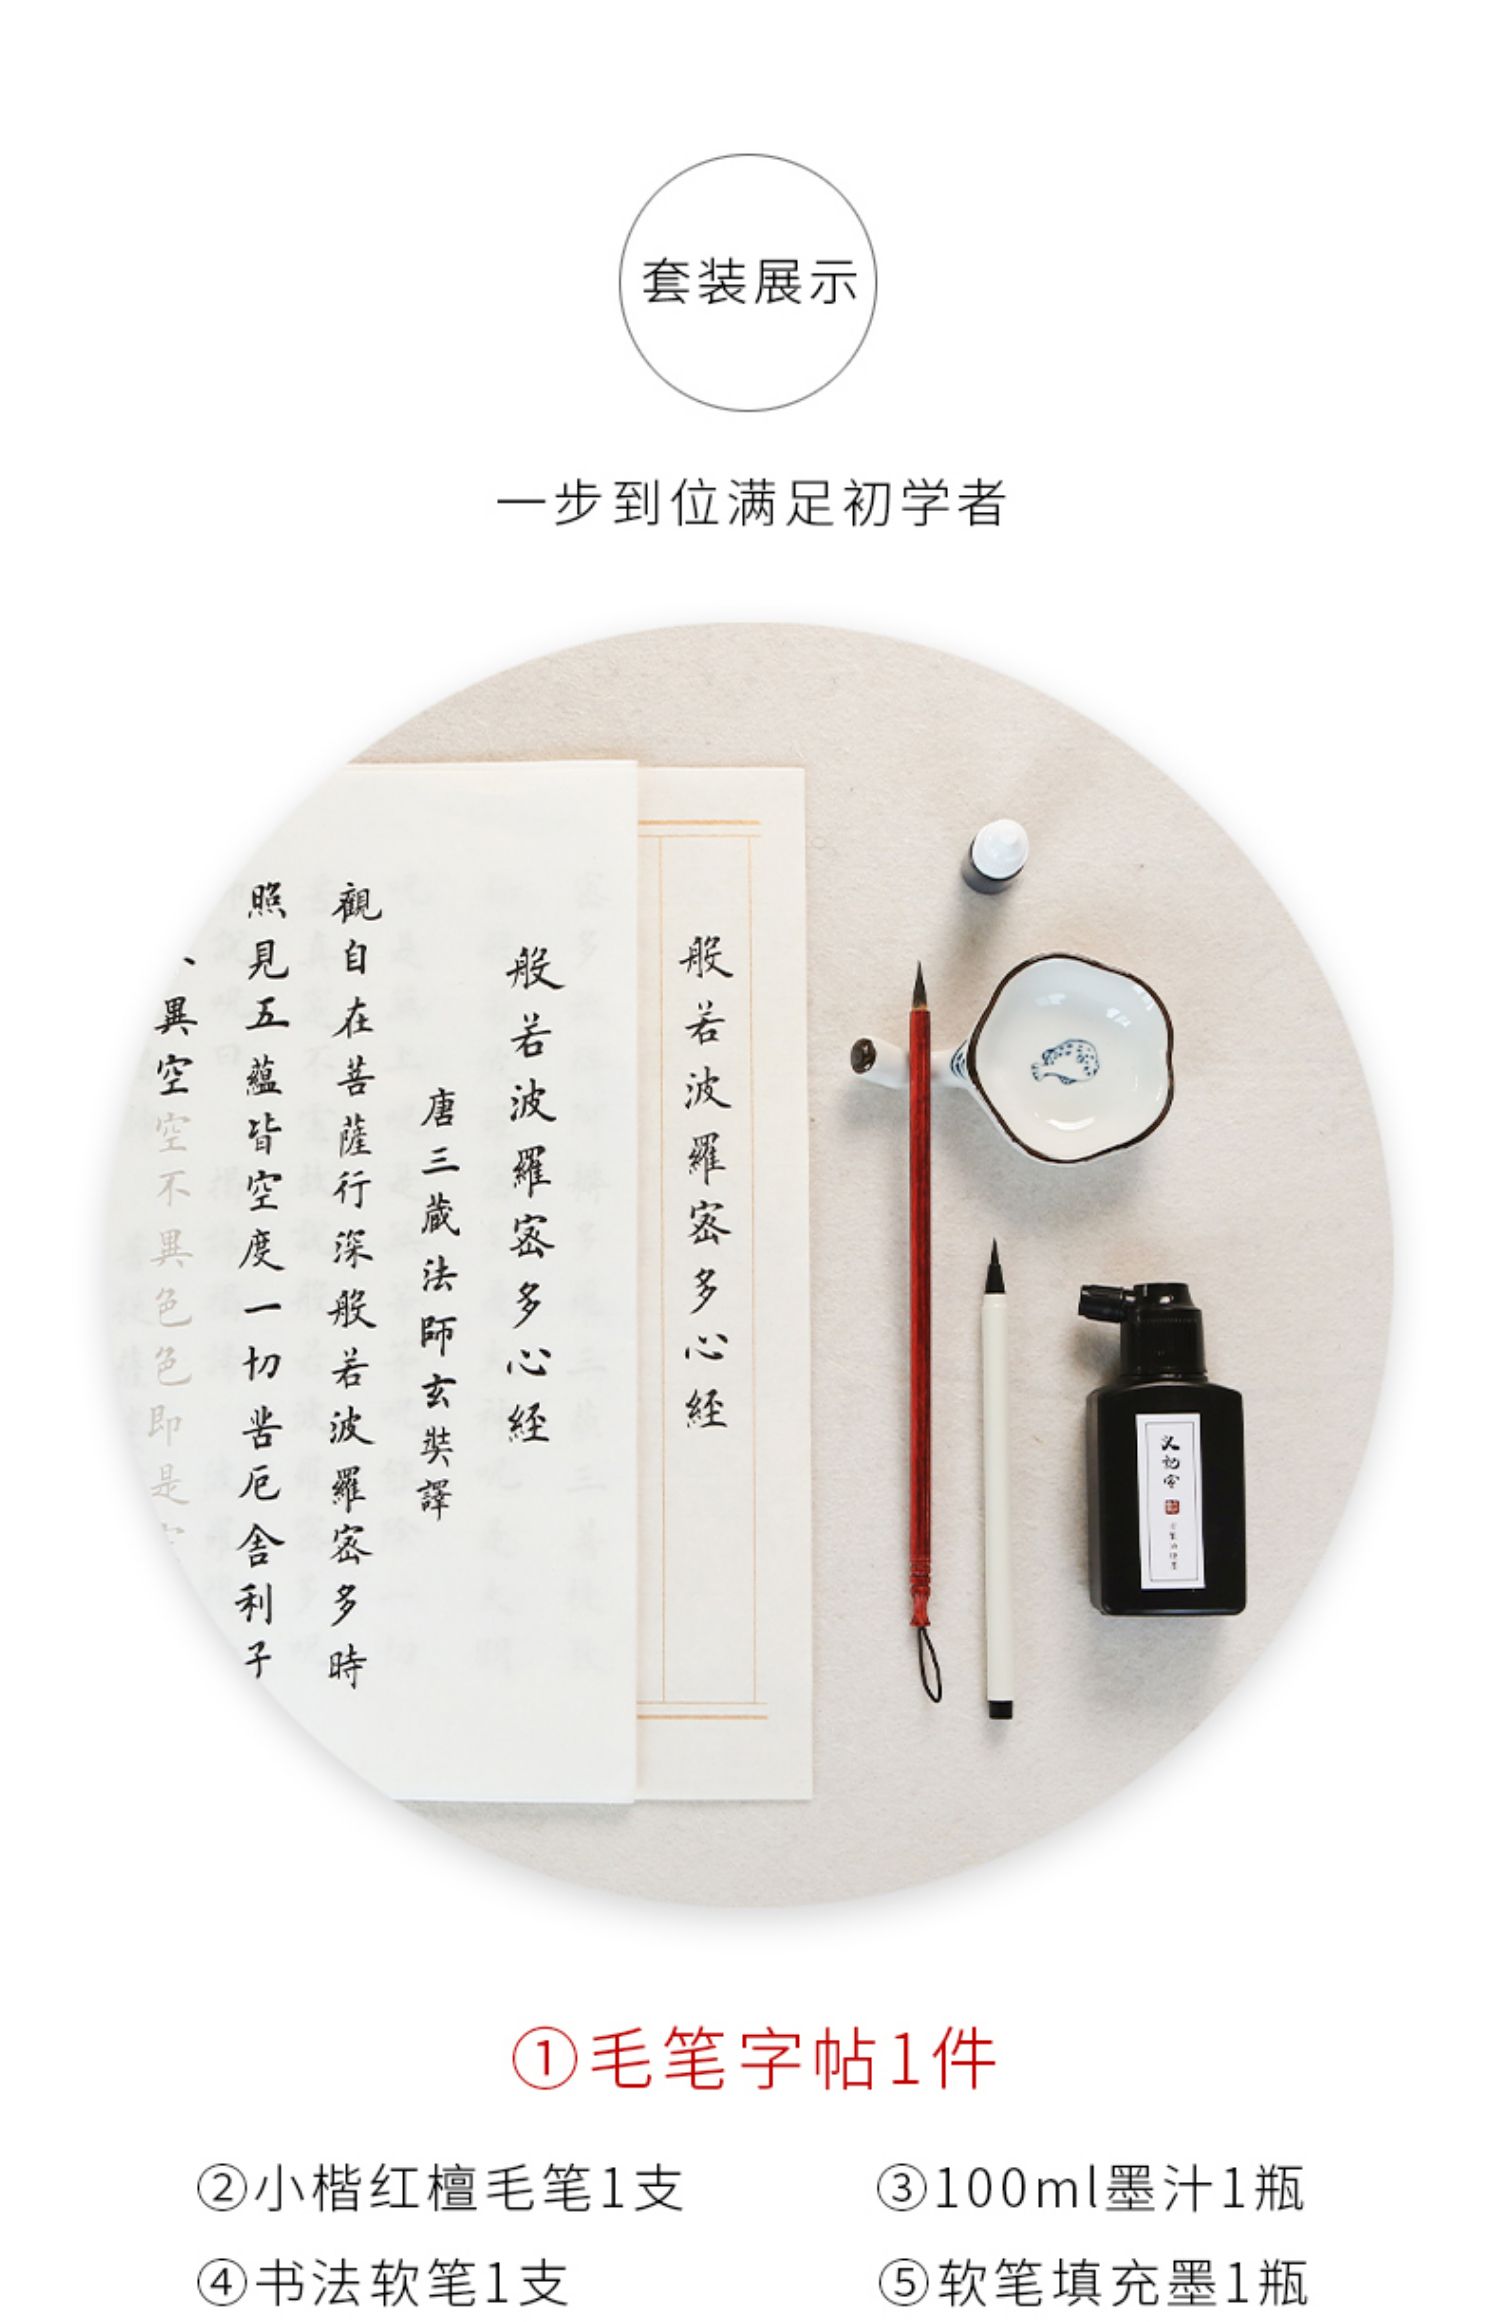 套装展示
一步到位满足初学者
般若波羅蜜多心経
般若波羅蜜多心経
唐三蔵法師玄奘譯
觀自在菩薩行深般若波羅蜜多時
照見五蘊皆空度一切苦厄舎利子
異空空不異色色即是
①毛笔字帖1件
②小楷红檀毛笔1支
③100ml墨汁1瓶
④书法软笔1支
⑤软笔填充墨1瓶